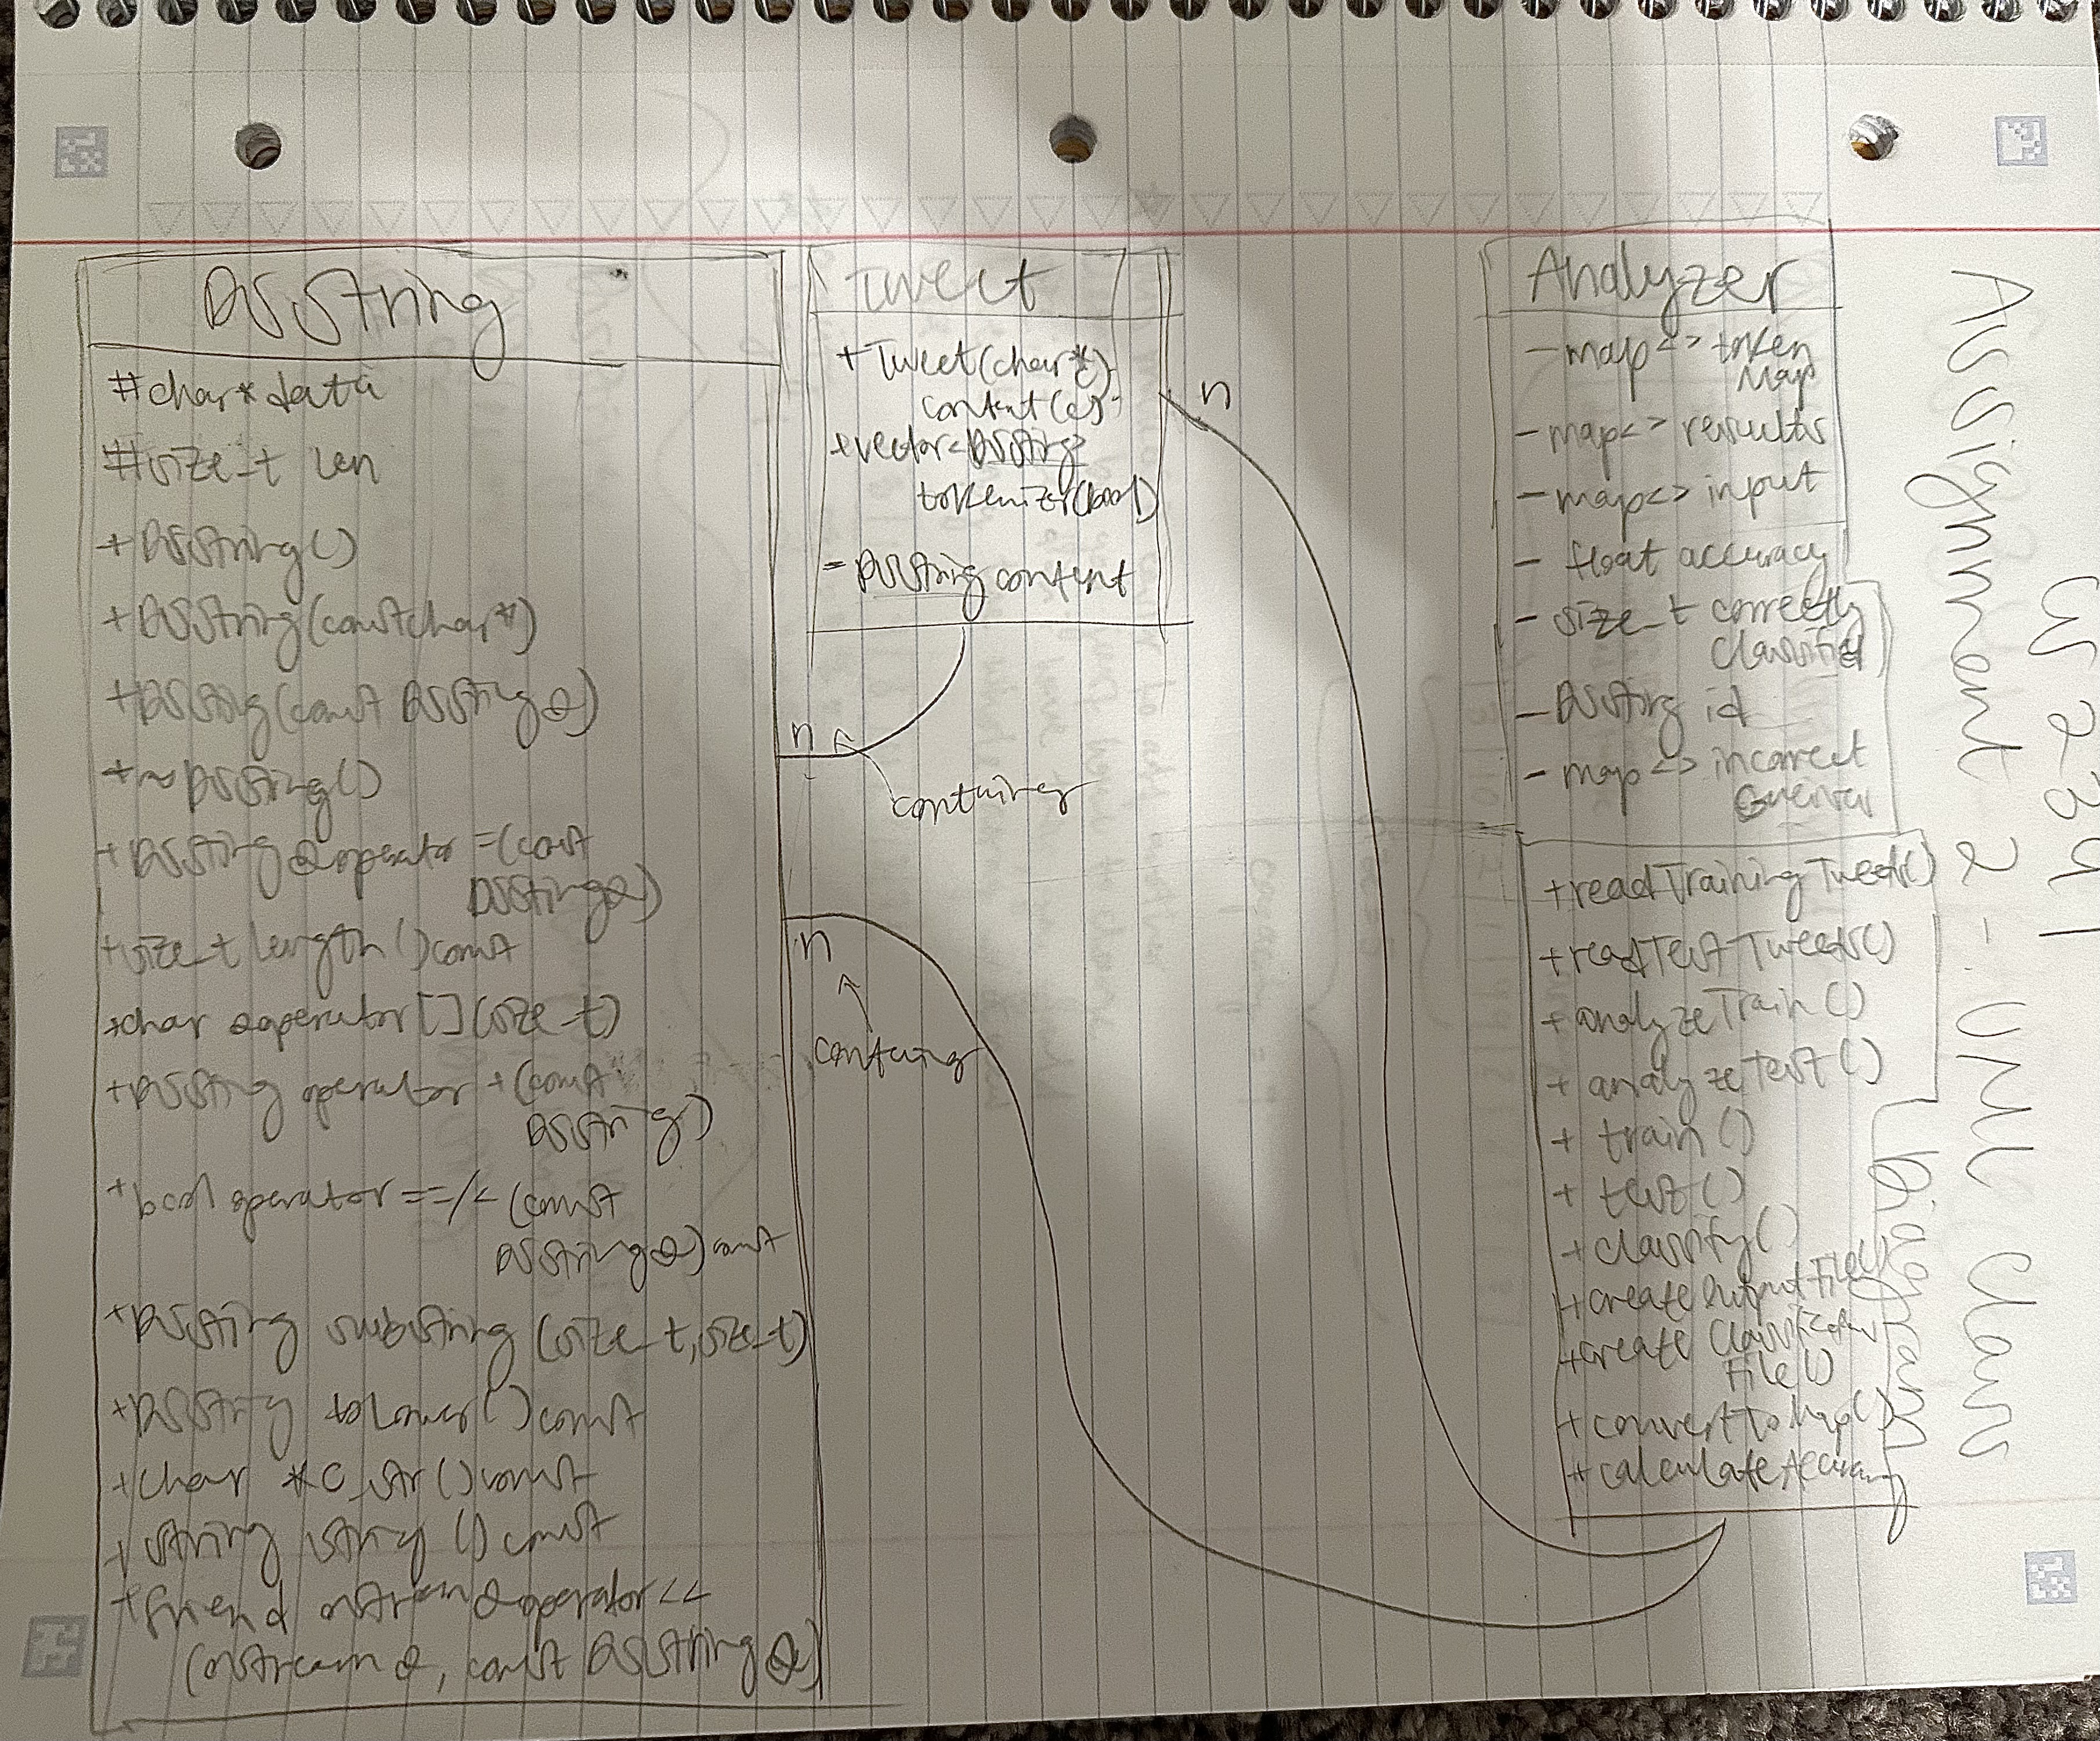 DSString
#char* data
#size_t len
+DSString()
+DSString(const char*)
+DSString(const DSString&)
+~DSString()
+DSString &operator =(const
DSString&)
+size_t length() const
+char &operator[](size_t)
+DSString operator +(const
DSString&)
+bool operator ==/< (const
DSString&) const
+DSString substring (size_t, size_t)
+DSString toLower() const
+char *c_str() const
+string string() const
+friend ostream &operator <<
(ostream &, const DSString &)
Tweet
+Tweet(char*)
content(c)
+vector<DSString>
tokenizer(bool)
- DSString content
n
n
containing
n
containing
Analyzer
- map<> token
Map
- map<> results
- map<> input
- float accuracy
- size_t correctly
Classified
- DSString id
- map<> incorrect
Guesses
+readTrainingTweets()
+readTestTweets()
+analyzeTrain()
+analyzeTest()
+train()
+test()
+classify()
+createOutputFile()
+create Classification
File()
+convertToMap()
+calculateAccuracy
CS 2341
Assignment 2 - UML Class
Diagram